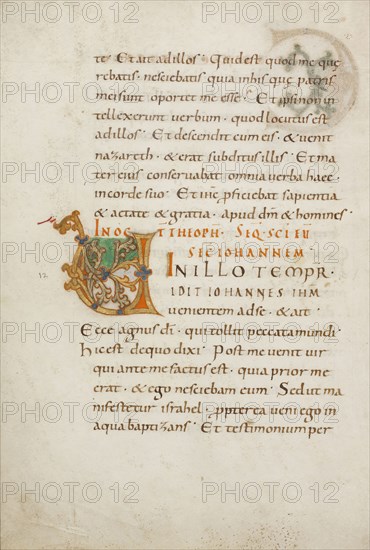 te · Et ait ad illos · Quid est quod me quę
rebatis · nesciebatis quia in his quę patris
mei sunt oportet me esse · Et ipsi non in
tellexerunt verbum · quod locutus est
ad illos · Et descendit cum eis · & venit
nazareth · & erat subditus illis · Et ma
ter eius conservabat omnia verba haec ·
in corde suo · Et ihc pficiebat sapientia
& aetate & gratia · apud dm & homines ·
IN OCT THEOPH · SEQ · SCI EV
SEC IOHANNEM
IN ILLO TEMPR ·
VIDIT IOHANNES IHM
venientem ad se · & ait ·
Ecce agnus di · qui tollit peccata mundi
hic est de quo dixi · Post me venit vir
qui ante me factus est · quia prior me
erat · & ego nesciebam eum · Sed ut ma
nifestetur israhel · ppterea veni ego in
aqua baptizans · Et testimonium per
12
PHOTO12